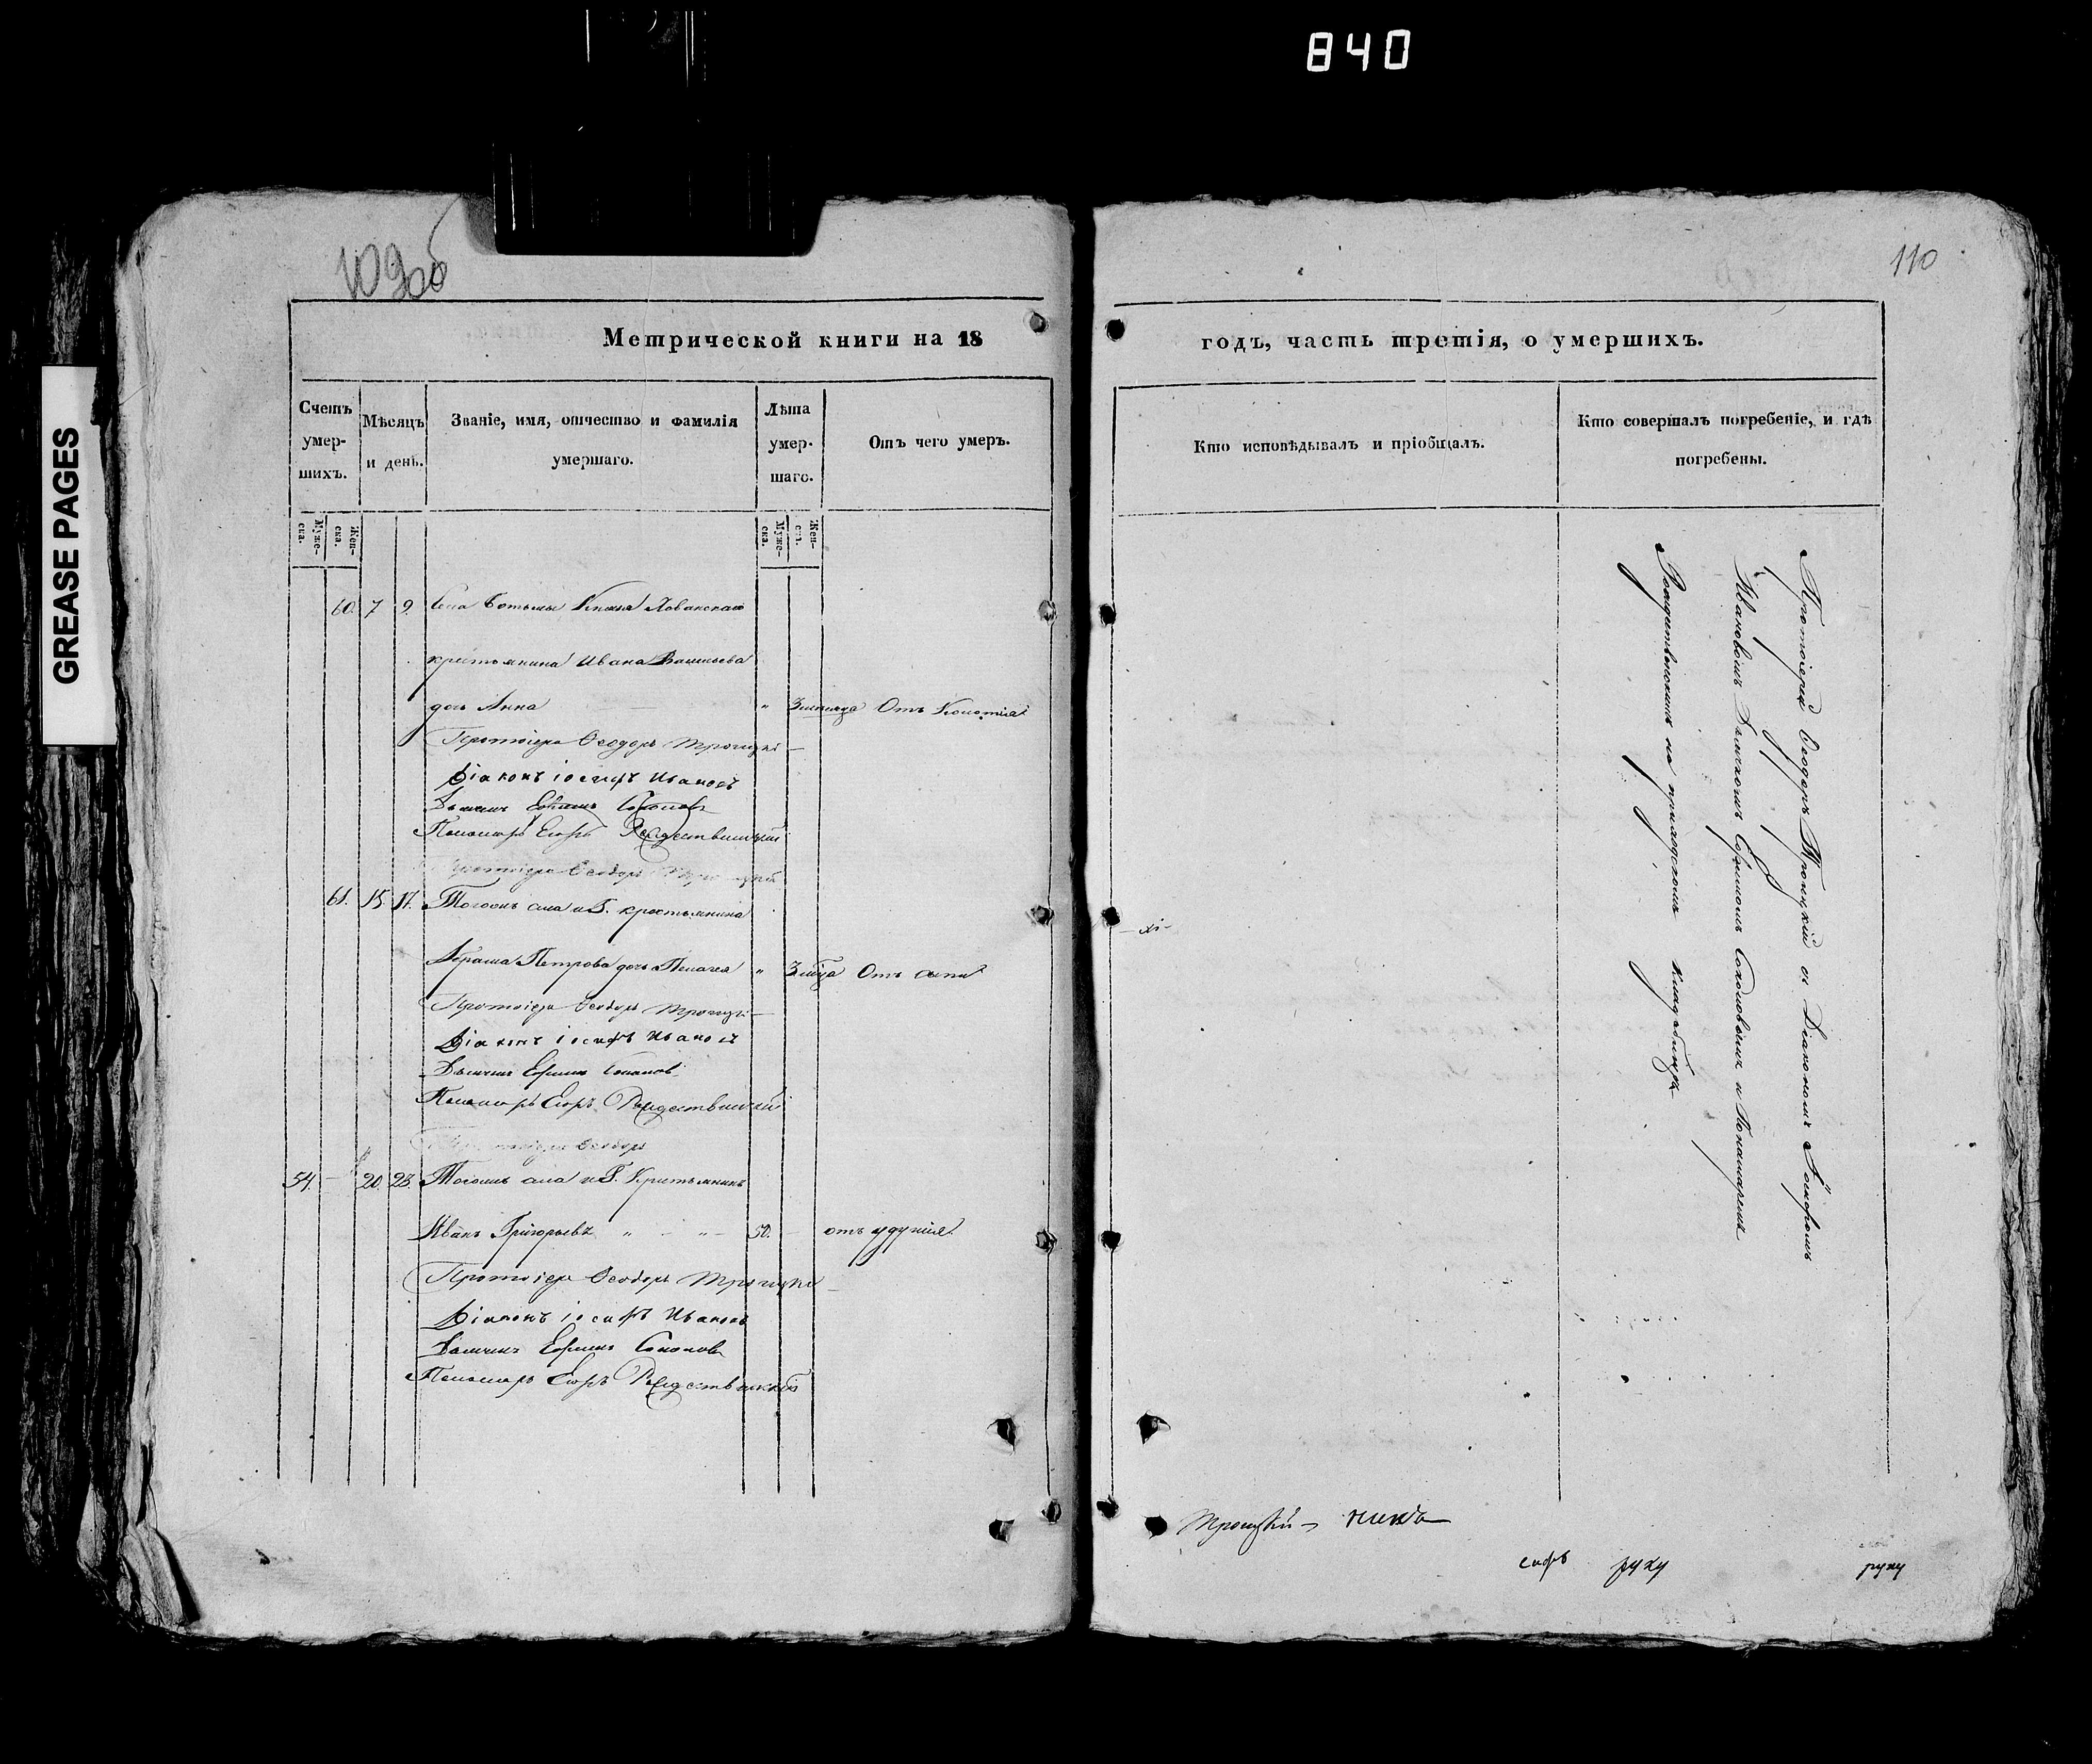 840
GREASE PAGES
109об
110
Метрической книги на 18
годъ, часть третія, о умершихъ.
Счетъ умер-шихъ.
Мѣсяцъ и день.
Званіе, имя, отчество и фамилія умершаго.
Лѣта умер-шаго.
Отъ чего умеръ.
Кто исповѣдывалъ и пріобщалъ.
Кто совершалъ погребеніе, и гдѣ погребены.
Муже-ска.
Жен-ска.
Муже-ска.
Жен-ск.
60. 7 9. Села Князя Хованскаго
крестьянина Ивана Васильева
дочь Анна "
Протоіерей Ѳеодоръ Троицкі
Діаконъ іосифъ Ивановъ
Дьячекъ Ефимъ Соколовъ
Пономарь Егоръ Рождественскій
Протоіерей Ѳеодоръ
61. 15 17. Тогожъ села и Г. крестьянина
Петрова дочь Пелагея " 3 года Отъ оспы
Протоіерей Ѳеодоръ Троицкі
Діаконъ іосифъ Ивановъ
Дьячекъ Ефимъ Соколовъ
Пономарь Егоръ Рождественскій
Ѳеодоръ
54. — 20. 23. Тогожъ села и Г. Крестьянинъ
Иванъ Григорьевъ " — " — 50. — отъ удушія
Протоіерей Ѳеодоръ Троицкі
Діаконъ іосифъ Ивановъ
Дьячекъ Ефимъ Соколовъ
Пономарь Егоръ Рождественскій
Протоіерей Ѳеодоръ Троицкій съ Діакономъ Іосифомъ
Ивановымъ Дьячкомъ Ефимомъ Соколовымъ и Пономаремъ
Рождественскимъ на приходскомъ кладбищѣ
Троицкій
сифъ руку
руку